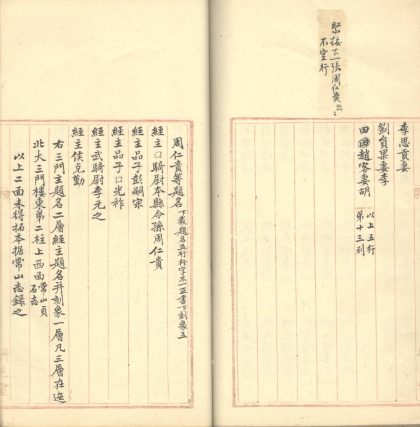 緊接下一張周仁貴云云
不空行
李思貢妻
劉貟果妻李
田國趙客妻胡
以上五行
第十三列
周仁貴等題名 下截題名五行行字不一正書下刻象五
經主口騎尉本縣令孫周仁貴
經主品子彭嗣宗
經主品子口光祚
經主武騎尉李元之
經主侯克勤
右三門主題名二層經主題名并刻象一層凡三層在
北大三門樓東第二柱上西面 常山貞石志
以上二面未得拓本据常山志錄之